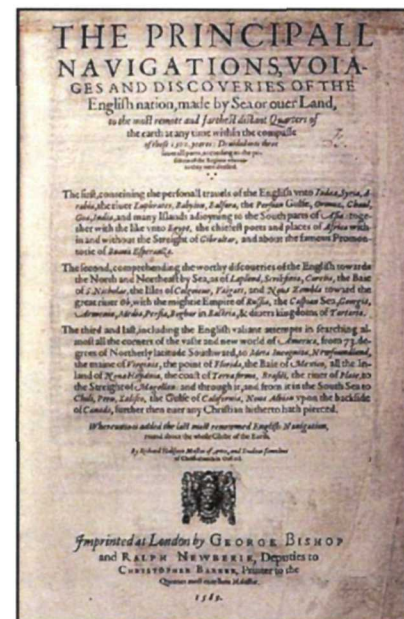 THE PRINCIPALL
NAVIGATIONS, VOIA-
GES AND DISCOVERIES OF THE
English nation, made by Sea or ouer Land,
to the most remote and farthest distant Quarters of
the earth at any time within the compasse
of these 1500. yeeres: Deuided into three
seuerall parts, according to the po-
The first, conteining the personall travels of the English vnto Iudæa, Syria, A-
rabia, the riuer Euphrates, Babylon, Balsara, the Persian Gulfe, Ormuz, Chaul,
Goa, India, and many Islands adioyning to the South parts of Asia: toge-
ther with the like vnto Egypt, the chiefest ports and places of Africa with-
in and without the Streight of Gibraltar, and about the famous Promon-
torie of Buona Esperanza.
The second, comprehending the worthy discoueries of the English towards
the North and Northeast by Sea, as of Lapland, Scrikfinia, Corelia, the Baie
of S. Nicholas, the Isles of Colgoieue, Vaigats, and Noua Zembla toward the
great riuer Ob, with the mightie Empire of Russia, the Caspian Sea, Georgia,
Armenia, Media, Persia, Boghar in Bactria, & diuers kingdoms of Tartaria.
The third and last, including the English valiant attempts in searching al-
most all the corners of the vaste and new world of America, from 73. de-
grees of Northerly latitude Southward, to Meta Incognita, Newfoundland,
the maine of Virginia, the point of Florida, the Baie of Mexico, all the In-
land of Noua Hispania, the coast of Terra firma, Brasill, the riuer of Plate, to
the Streight of Magellan: and through it, and from it in the South Sea to
Chili, Peru, Xalisco, the Gulfe of California, Noua Albion vpon the backside
of Canada, further then euer any Christian hitherto hath pierced.
Whereunto is added the last most renowmed English Nauigation,
round about the whole Globe of the Earth.
By Richard Hakluyt Master of Artes, and Student sometime
of Christ-church in Oxford.
Imprinted at London by GEORGE BISHOP
and RALPH NEWBERIE, Deputies to
CHRISTOPHER BARKER, Printer to the
Queenes most excellent Maiestie.
1589.